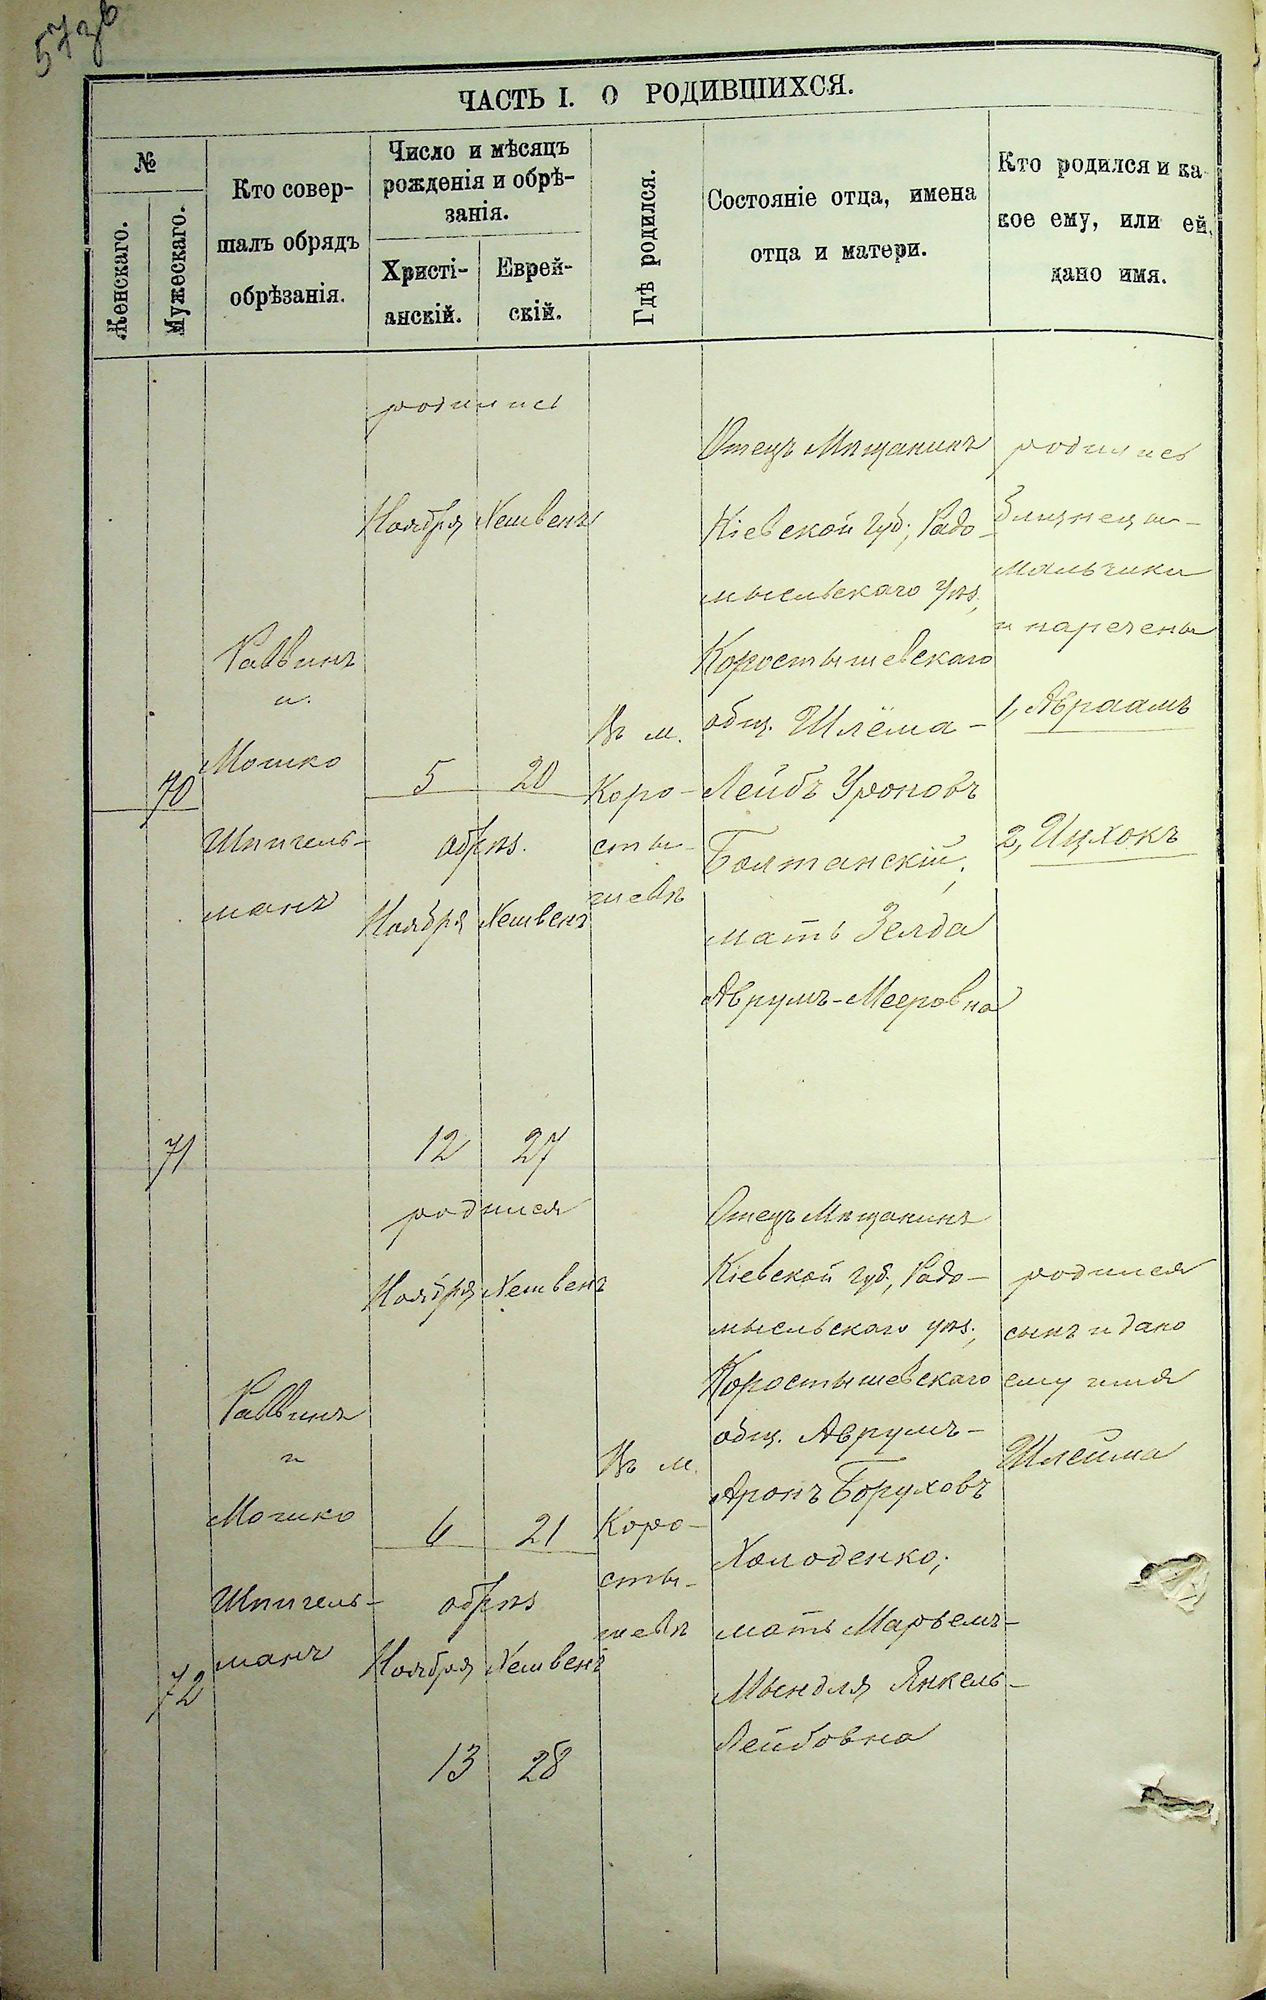 573б
ЧАСТЬ I. О РОДИВШИХСЯ.
№
Женскаго.
Мужескаго.
Кто совер-
шалъ обрядъ
обрѣзанія.
Число и мѣсяцъ
рожденія и обрѣ-
занія.
Христі-
анскій.
Еврей-
скій.
Гдѣ родился.
Состояніе отца, имена
отца и матери.
Кто родился и ка-
кое ему, или ей,
дано имя.
70
71
Раввинъ
и
Мошко
Шпигель-
манъ
родились
Ноября Хешвенъ
5 20
обрѣз.
Ноября Хешвенъ
12 27
Въ м.
Коро-
сты-
шевѣ
Отецъ Мѣщанинъ
Кіевской губ., Радо-
мысльскаго уѣз.,
Коростышевскаго
общ. Шлёма-
Лейбъ Уроновъ
Болтанскій;
мать Зелда
Аврумъ-Мееровна
родились
близнецы-
мальчики
и наречены
1, Авраамъ
2, Ицхокъ
72
Раввинъ
и
Мошко
Шпигель-
манъ
родился
Ноября Хешвенъ
6 21
обрѣз
Ноября Хешвенъ
13 28
Въ м.
Коро-
сты-
шевѣ
Отецъ Мѣщанинъ
Кіевской губ., Радо-
мысльскаго уѣз.,
Коростышевскаго
общ. Аврумъ-
Аронъ Боруховъ
Холоденко;
мать Марьемъ-
Мындля Янкель-
Лейбовна
родился
сынъ и дано
ему имя
Шлейма